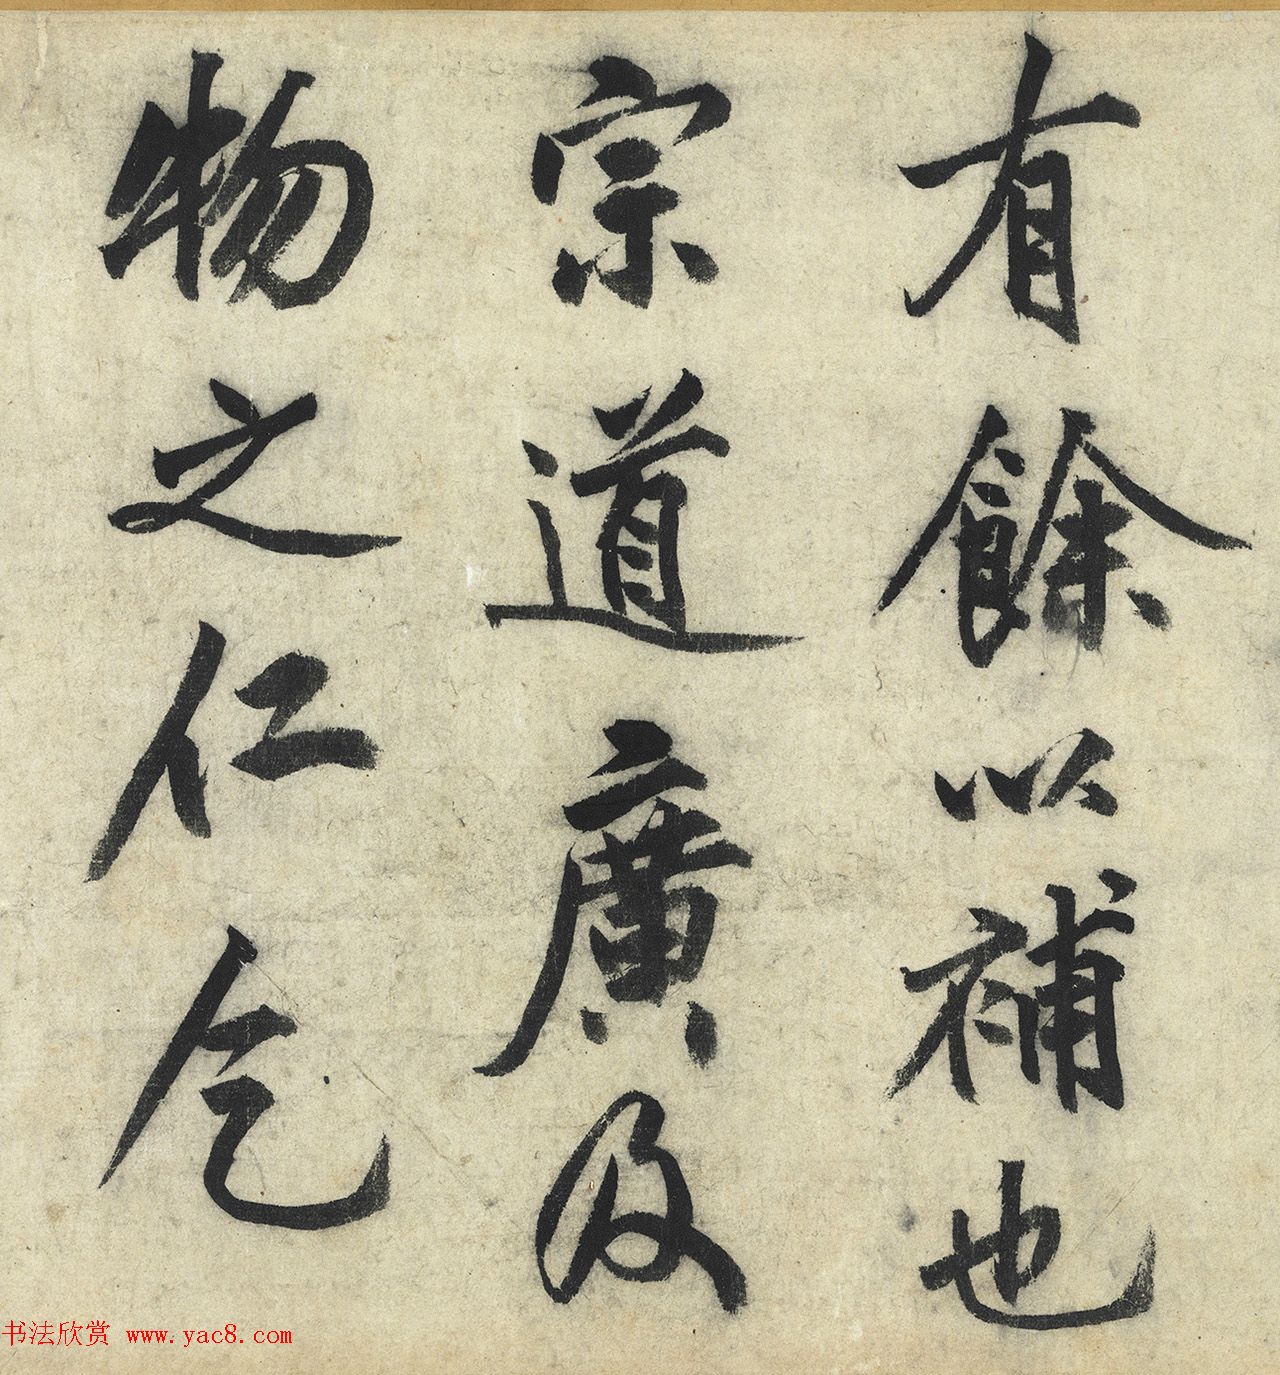 有餘以補也
宗道廣及
物之仁乞
书法欣赏 www.yac8.com